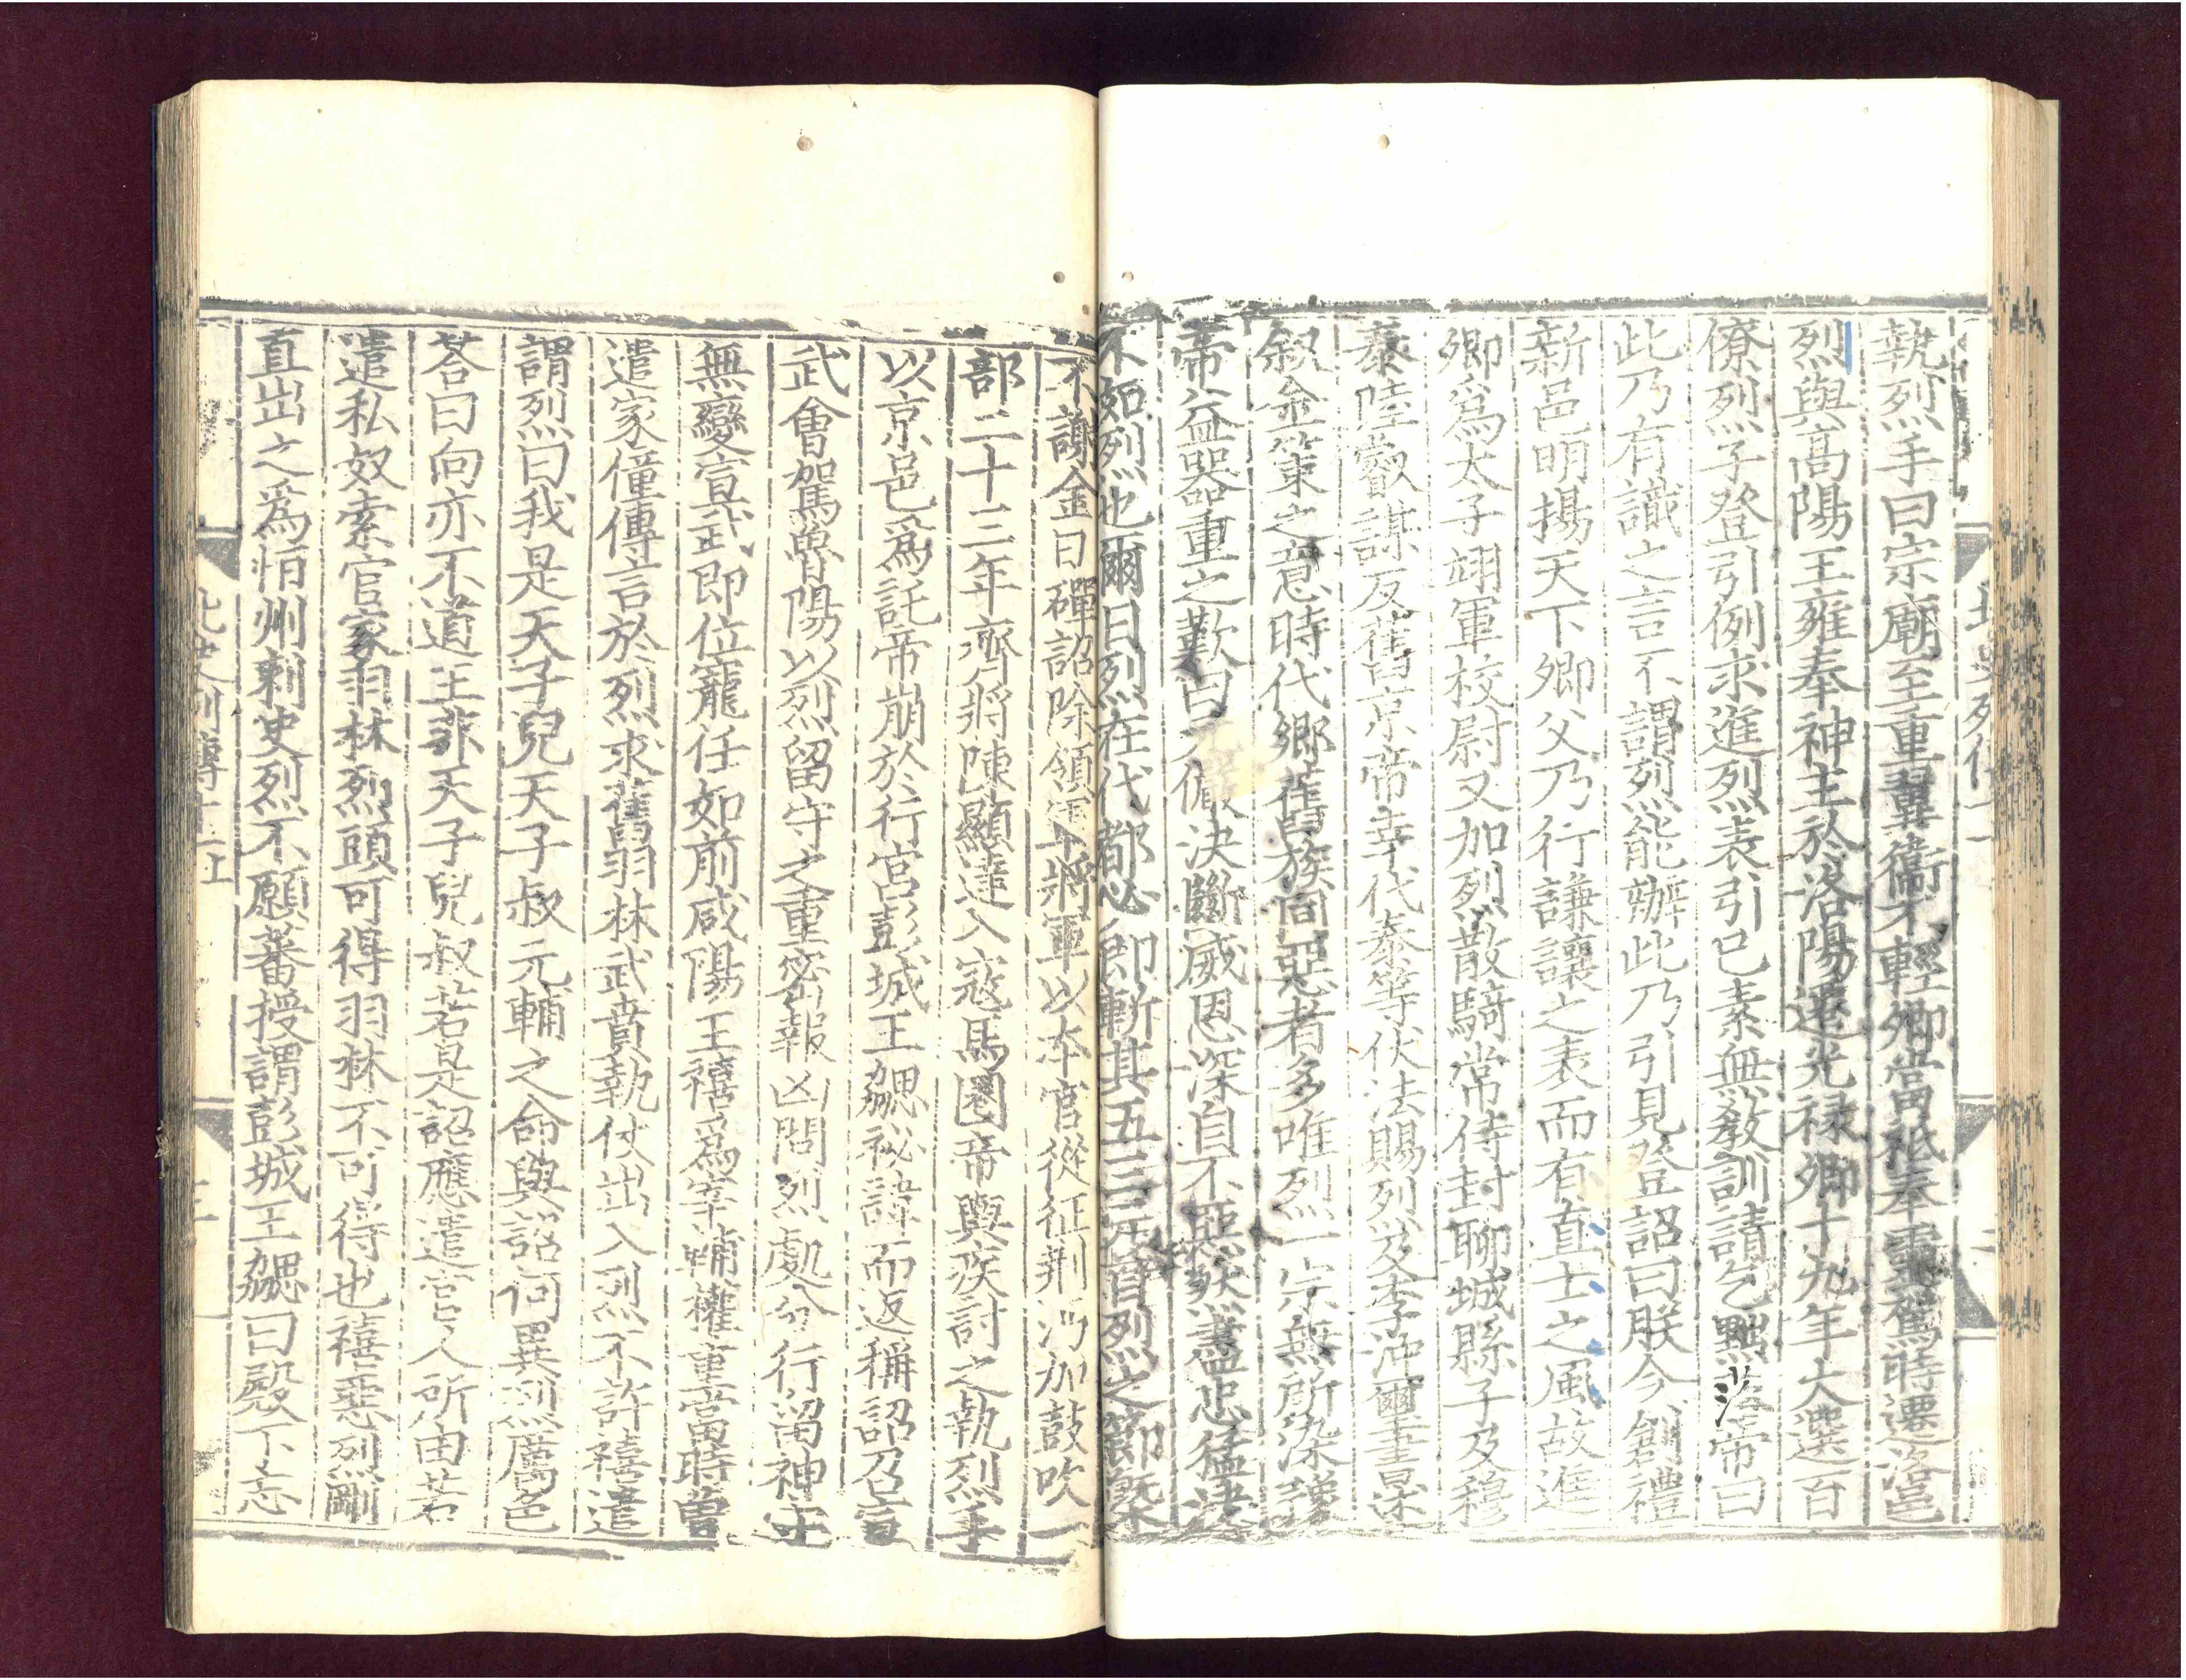 執烈手曰宗廟至重翼衞不輕卿當祗奉靈駕時遷洛邑
烈與高陽王雍奉神主於洛陽遷光禄卿十九年大選百
僚烈子登引例求進烈表引已素無敎訓請乞黜落帝曰
此乃有識之言不謂烈能辦此乃引見登詔曰朕今創禮
新邑明揚天下卿父乃行謙讓之表而有直士之風故進
卿爲太子翊軍校尉又加烈散騎常侍封聊城縣子及穆
泰陸叡謀反舊京帝幸代泰等伏法賜烈及李沖璽書述
叙金䇿之意時代鄉舊族同惡者多唯烈一宗無所染預
帝益器重之歎曰元儼決斷威恩深自不惡然盡忠猛決
不如烈也爾日烈在代都必即斬其五三元首烈之節槩
不謝金日磾詔除領軍將軍以本官從征荆沔加鼓吹一
部二十三年齊將陳顯達入寇馬圈帝輿疾討之執烈手
以京邑爲託帝崩於行宮彭城王勰祕諱而返稱詔召宣
武會駕魯陽以烈留守之重密報凶問烈處分行留神守
無變宣武即位寵任如前咸陽王禧爲宰輔權重當時曾
遣家僮傳言於烈求舊羽林武賁執仗出入烈不許禧遣
謂烈曰我是天子兒天子叔元輔之命與詔何異烈厲色
荅曰向亦不道王非天子兒叔若是詔應遣官人所由若
遣私奴索官家羽林烈頭可得羽林不可得也禧惡烈剛
直出之爲恒州剌史烈不願蕃授謂彭城王勰曰殿下忘
北史列傳十一上